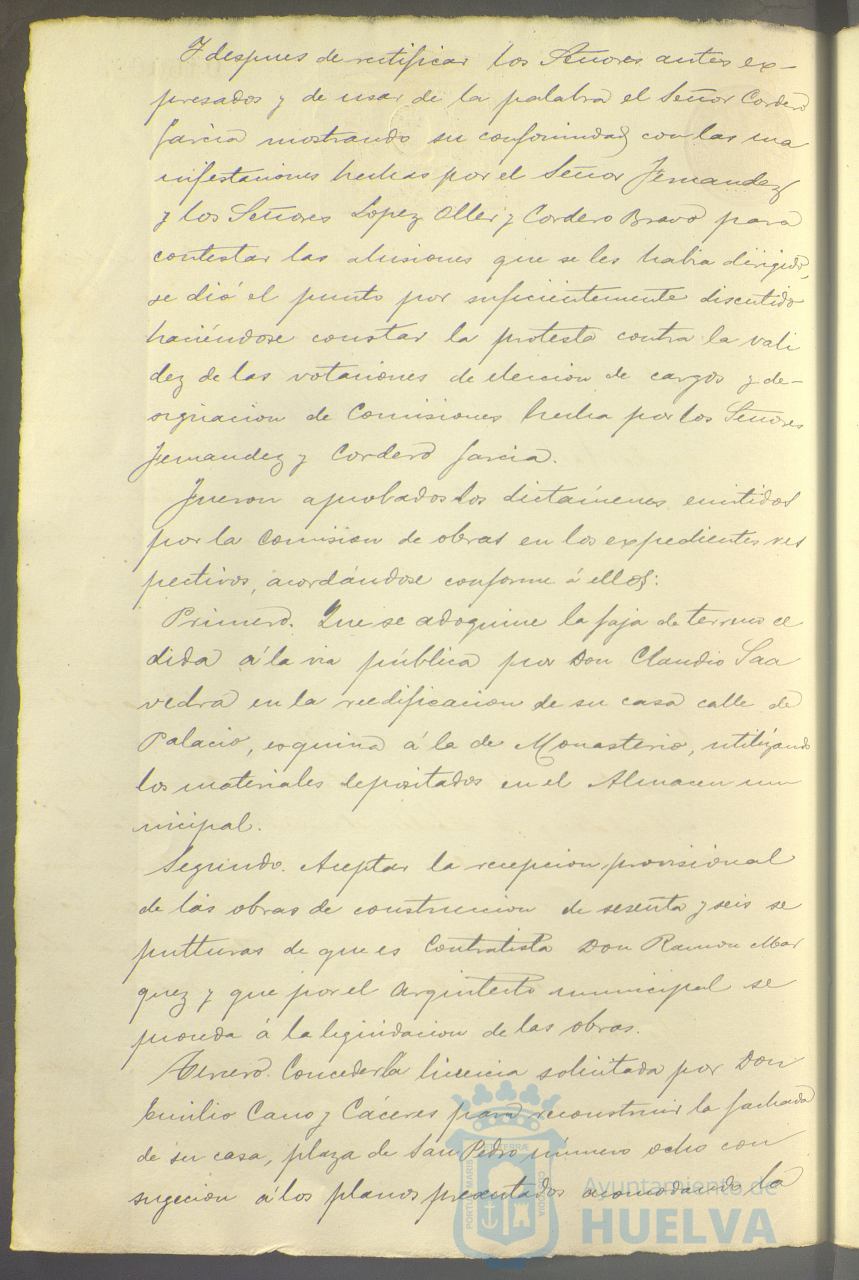 Y despues de rectificar los Señores antes ex-
presados y de usar de la palabra el Señor Cordero
Garcia mostrando su conformidad con las ma
nifestaciones hechas por el Señor Fernandez
y los Señores Lopez Oller y Cordero Bravo para
contestar las alusiones que se les habia dirigido,
se dió el punto por suficientemente discutido
haciéndose constar la protesta contra la vali
dez de las votaciones de eleccion de cargos y de-
signacion de Comisiones hecha por los Señores
Fernandez y Cordero Garcia.
Fueron aprobados los dictámenes emitidos
por la Comision de obras en los expedientes res
pectivos, acordándose conforme á ellos:
Primero. Que se adoquine la faja de terreno ce
dida á la via pública por Don Claudio Saa
vedra en la reedificacion de su casa calle de
Palacio, esquina á la de Monasterio, utilizando
los materiales depositados en el Almacen mu
nicipal.
Segundo. Aceptar la recepcion provisional
de las obras de construccion de sesenta y seis se
pulturas de que es Contratista Don Ramon Mar
quez y que por el Arquitecto municipal se
proceda á la liquidacion de las obras.
Tercero. Conceder la licencia solicitada por Don
Emilio Cano y Cáceres para reconstruir la fachada
de su casa, plaza de San Pedro número ocho con
sugecion á los planos presentados acomodando la
PORTUS MARIS ET TERRÆ CUSTODIA
Ayuntamiento de
HUELVA